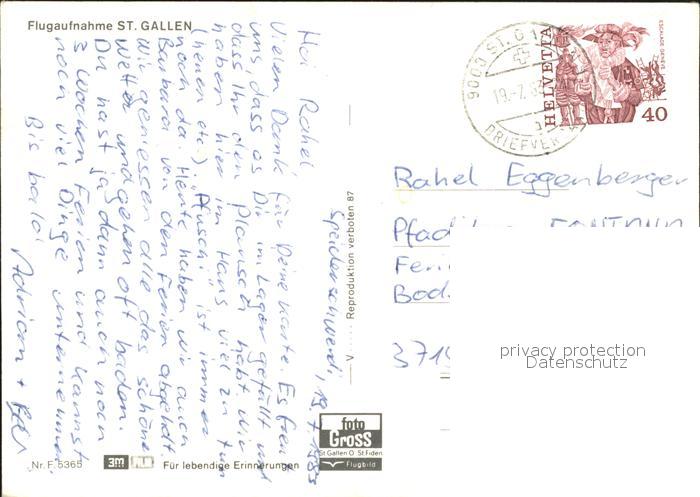 Flugaufnahme ST. GALLEN
Speicherschwendi, 19.7.1983
Hoi Rahel,
Vielen Dank für Deine Karte. Es freut
uns, dass es Dir im Lager gefällt und
dass Ihr den Plausch habt. Wir
haben hier im Haus viel zu tun
(heuen etc.). "Pfuschi" ist immer
noch da. Heute haben wir auch
Barbara von den Ferien abgeholt.
Wir geniessen alle das schöne
Wetter und gehen oft baden.
Du hast ja dann auch noch
3 Wochen Ferien und kannst
noch viel Dinge unternehmen.
Bis bald
Adrian +
Nr. F 5365
3m
Für lebendige Erinnerungen
V
Reproduktion verboten 87
foto
Gross
St Gallen O St Fiden
Flugbild
9000 ST. G
19.-7.83
BRIEFVER
HELVETIA
ESCALADE GENÈVE
40
Rahel Eggenberger
Feri
Bod
371
privacy protection
Datenschutz